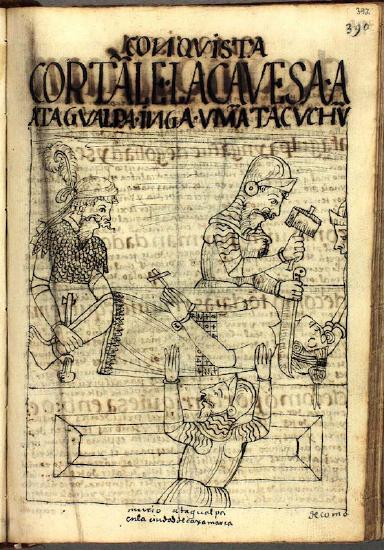 392
390
CONQVISTA
CORTALE·LACAVESA·A
ATAGVALPA·INGA·VMATACVCHV̄
murio atagualpa
en la ciudad de caxamarca
de como